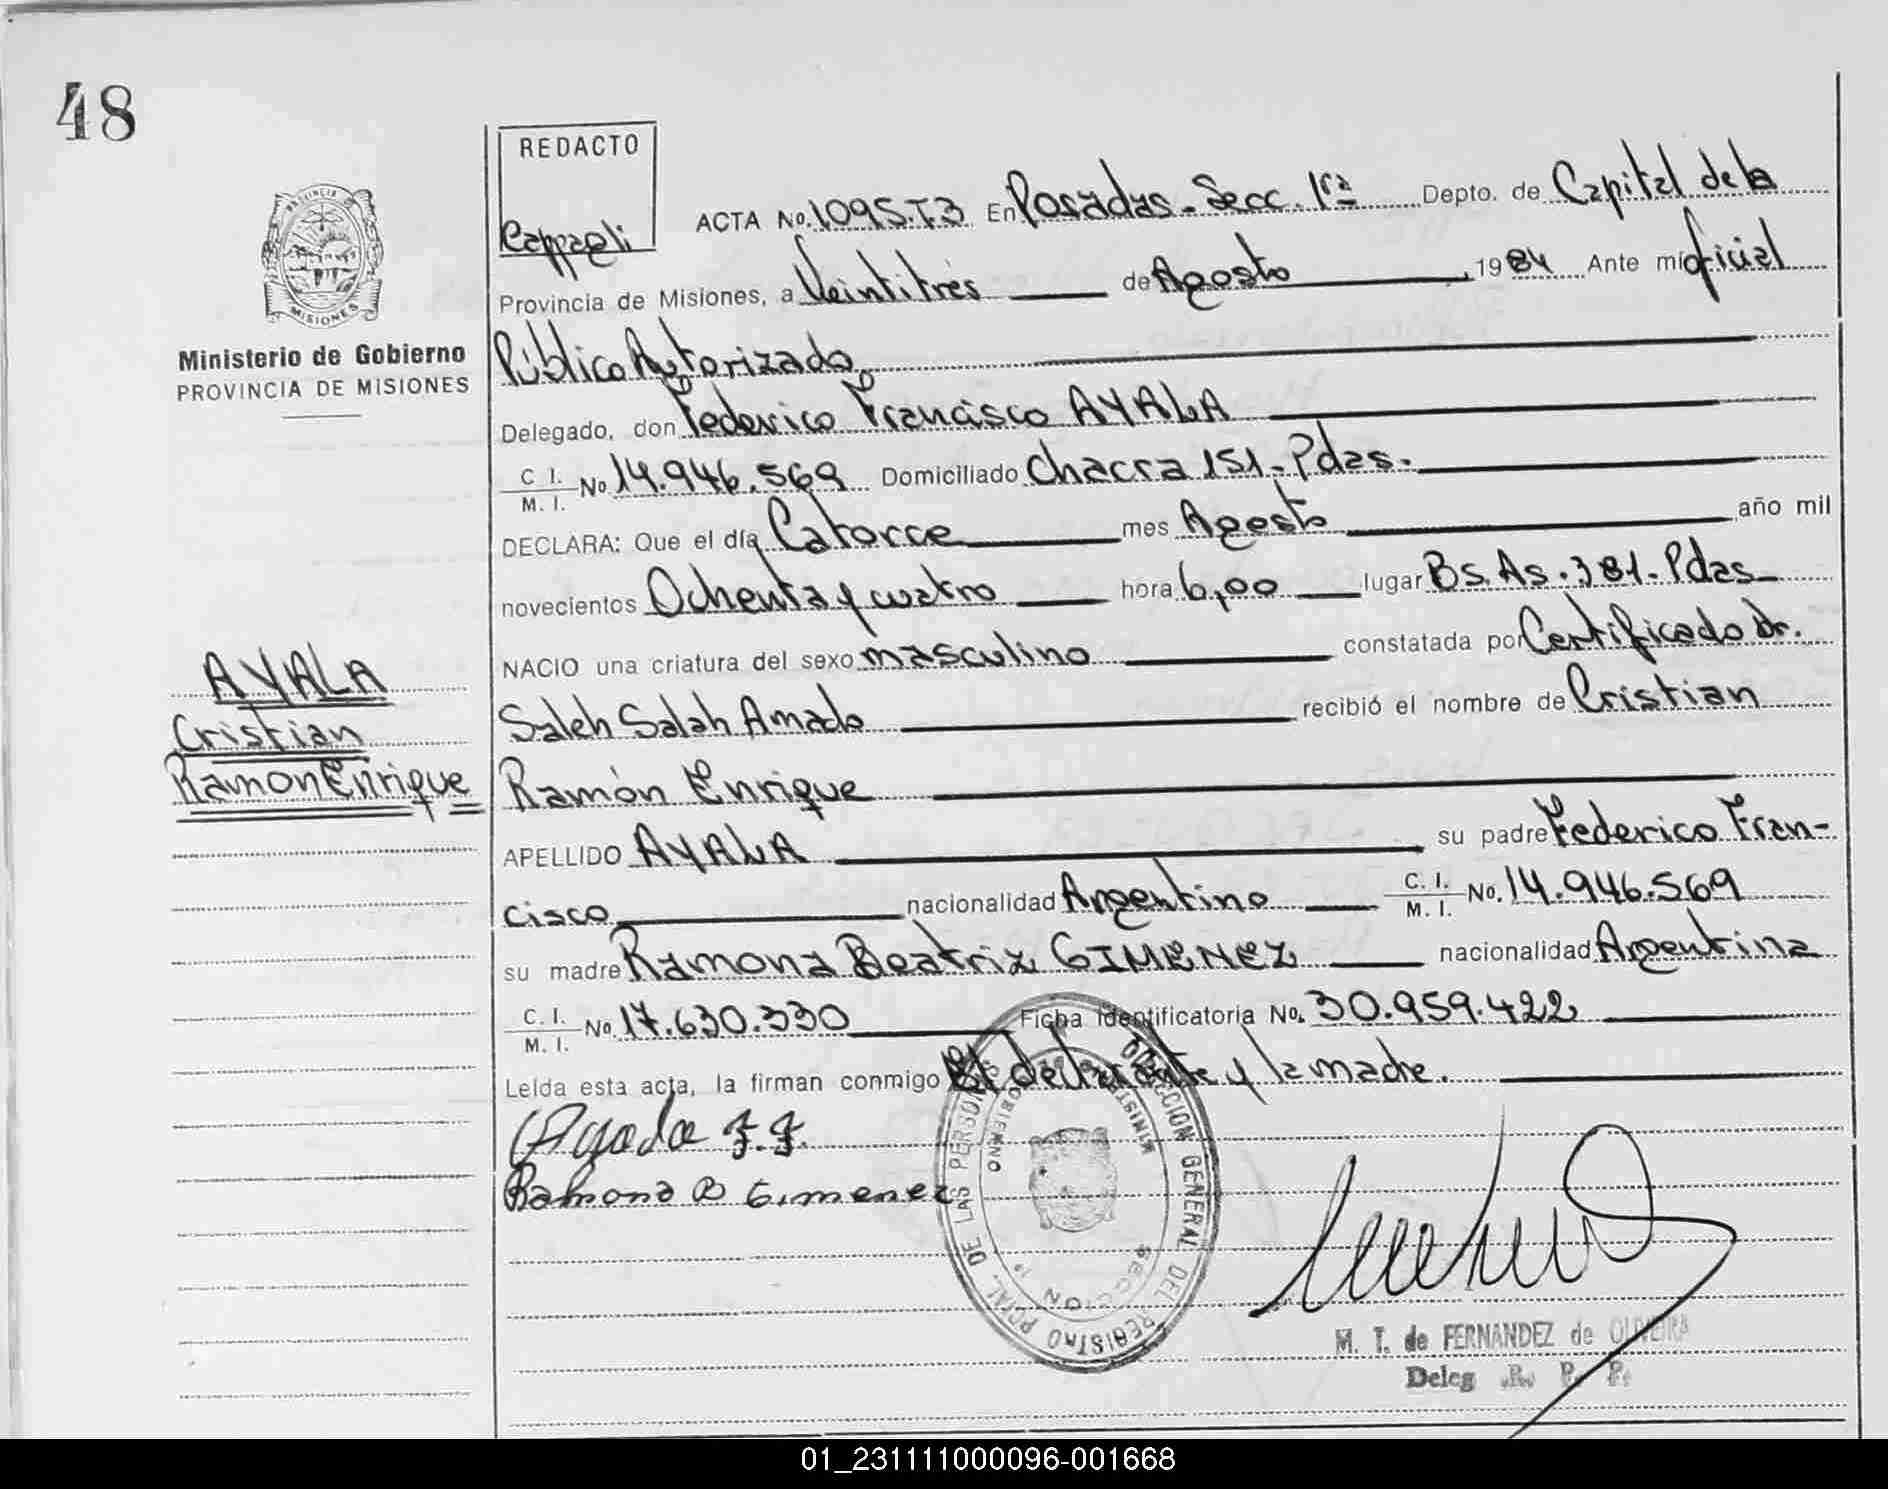 48
REDACTO
Cappagli
PROVINCIA
MISIONES
Ministerio de Gobierno
PROVINCIA DE MISIONES
ACTA No. 1095.T3 En Posadas. Secc. 1ra Depto. de Capital de la
Provincia de Misiones, a Veintitrés de Agosto, 1984 Ante mi oficial
Público Autorizado
Delegado, don Federico Francisco AYALA
C. I. / M. I. No 14.946.569 Domiciliado Chacra 151. Pdas.
DECLARA: Que el día Catorce mes Agosto año mil
novecientos Ochenta y cuatro hora 6,00 lugar Bs. As. 381. Pdas
NACIO una criatura del sexo masculino constatada por Certificado Dr.
Saleh Salah Amado recibió el nombre de Cristian
Ramón Enrique
APELLIDO AYALA su padre Federico Fran-
cisco nacionalidad Argentino C. I. / M. I. No. 14.946.569
su madre Ramona Beatriz GIMENEZ nacionalidad Argentina
C. I. / M. I. No. 17.630.330 Ficha Identificatoria No. 30.959.422
Leída esta acta, la firman conmigo El declarante y la madre.
Ayala F. F.
Ramona B Gimenez
AYALA
Cristian
Ramon Enrique
DIRECCION GENERAL DEL REGISTRO PCIAL. DE LAS PERSONAS
MINISTERIO DE GOBIERNO
SECCION 1ª
M. T. de FERNANDEZ de OLIVEIRA
Deleg R. P. P.
01_231111000096-001668